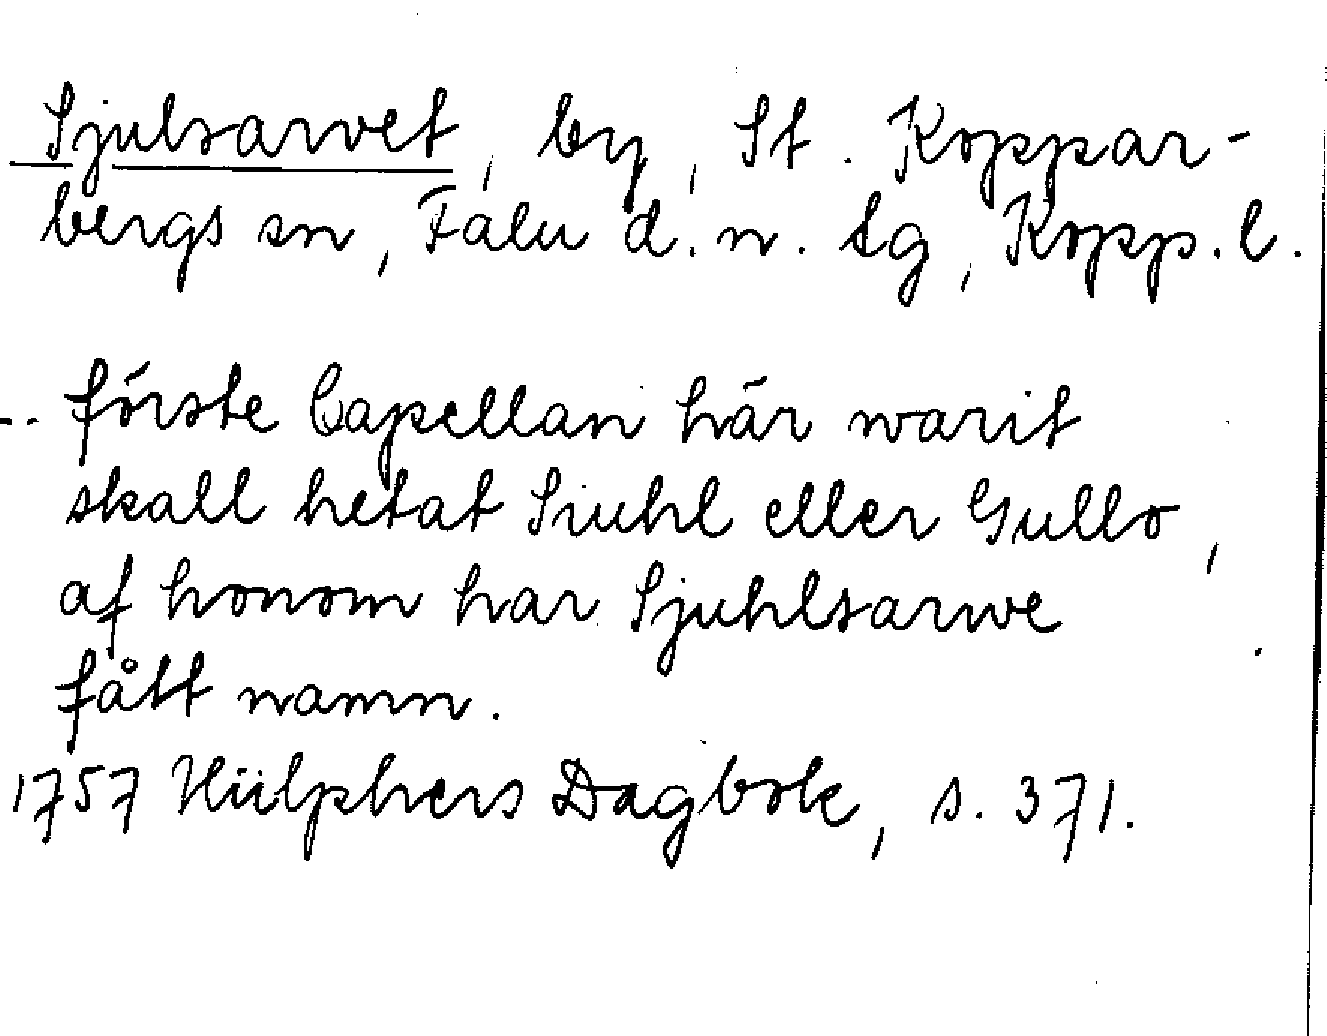 Sjulsarvet, by, St. Koppar-
bergs sn, Falu d.n. tg, Kopp. l.
-- förste Capellan här warit
skall hetat Siuhl eller Gullo,
af honom har Sjuhlsarwe
fått namn.
1757 Hülphers Dagbok, s. 371.